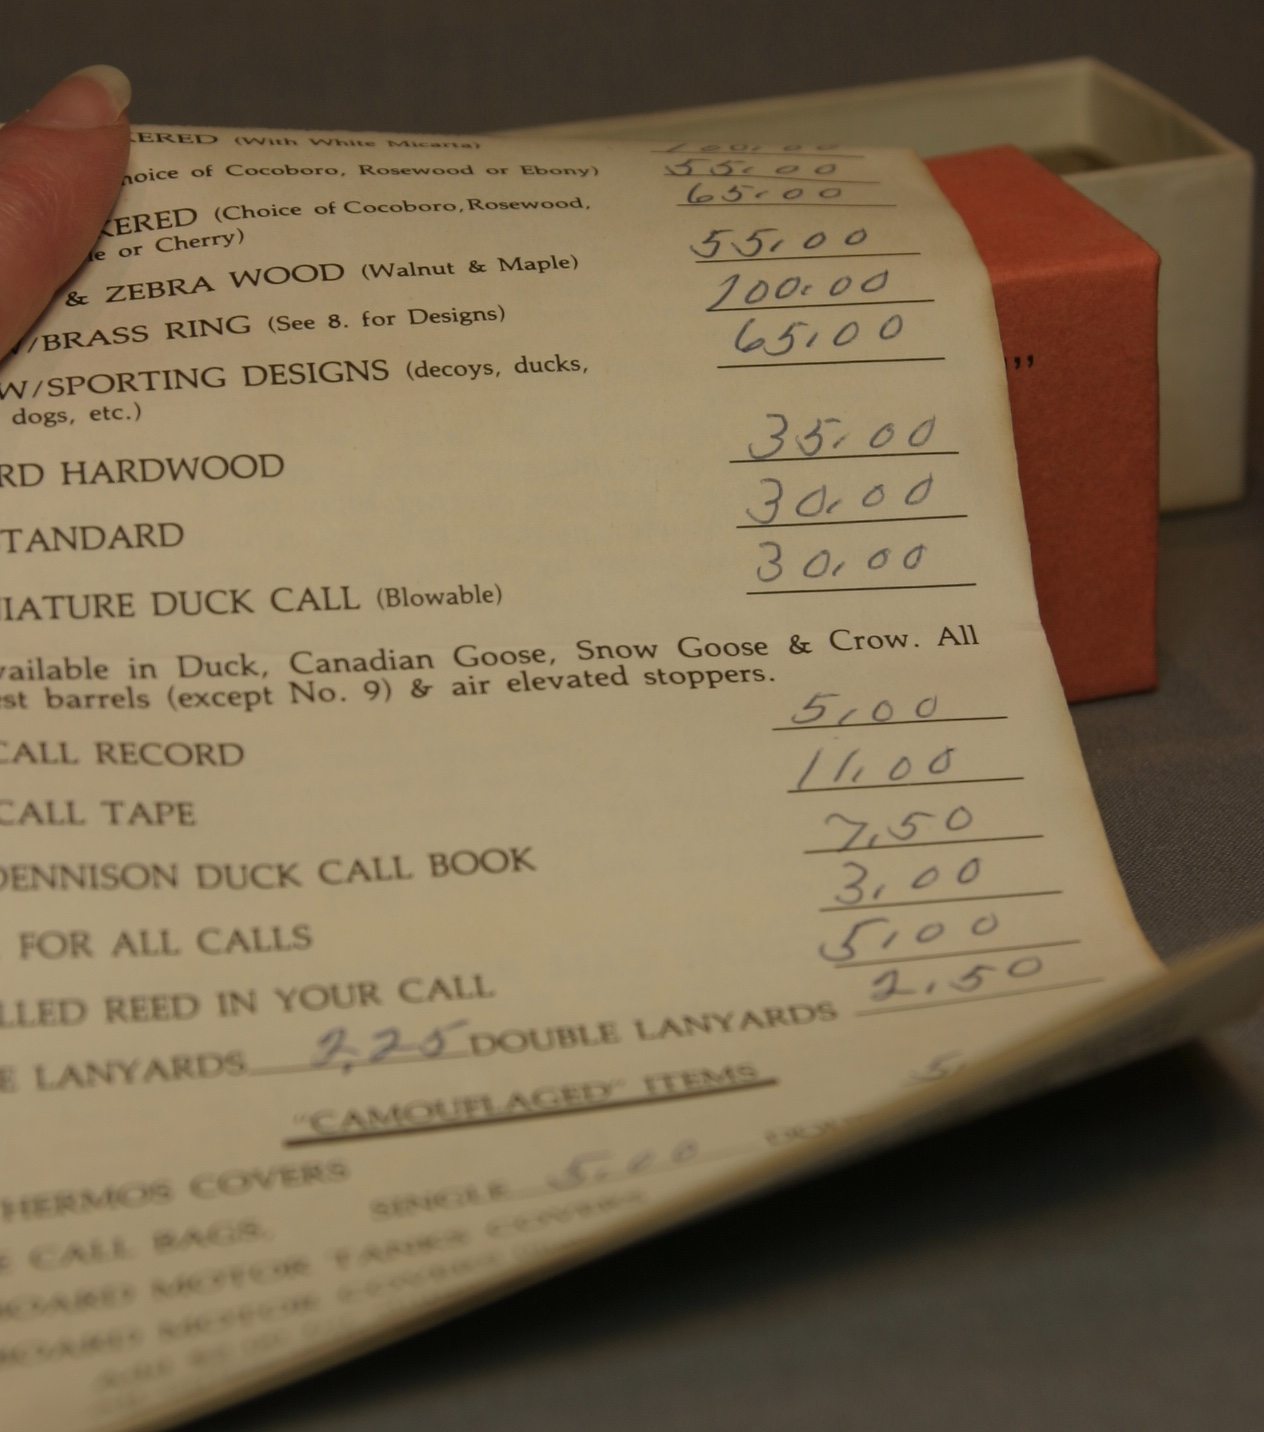 KERED (With White Micarta) 100.00
hoice of Cocoboro, Rosewood or Ebony) 55.00
KERED (Choice of Cocoboro, Rosewood, 65.00
le or Cherry)
& ZEBRA WOOD (Walnut & Maple) 55.00
W/BRASS RING (See 8. for Designs) 100.00
W/SPORTING DESIGNS (decoys, ducks, 65.00
dogs, etc.)
RD HARDWOOD 35.00
TANDARD 30.00
IATURE DUCK CALL (Blowable) 30.00
vailable in Duck, Canadian Goose, Snow Goose & Crow. All
st barrels (except No. 9) & air elevated stoppers.
CALL RECORD 5.00
CALL TAPE 11.00
DENNISON DUCK CALL BOOK 7.50
FOR ALL CALLS 3.00
LLED REED IN YOUR CALL 5.00
E LANYARDS 2.25 DOUBLE LANYARDS 2.50
"CAMOUFLAGED" ITEMS
HERMOS COVERS 5.
CALL BAGS. SINGLE 5.00
BOARD MOTOR TANKS COVERS
BOARD MOTOR COVERS
"